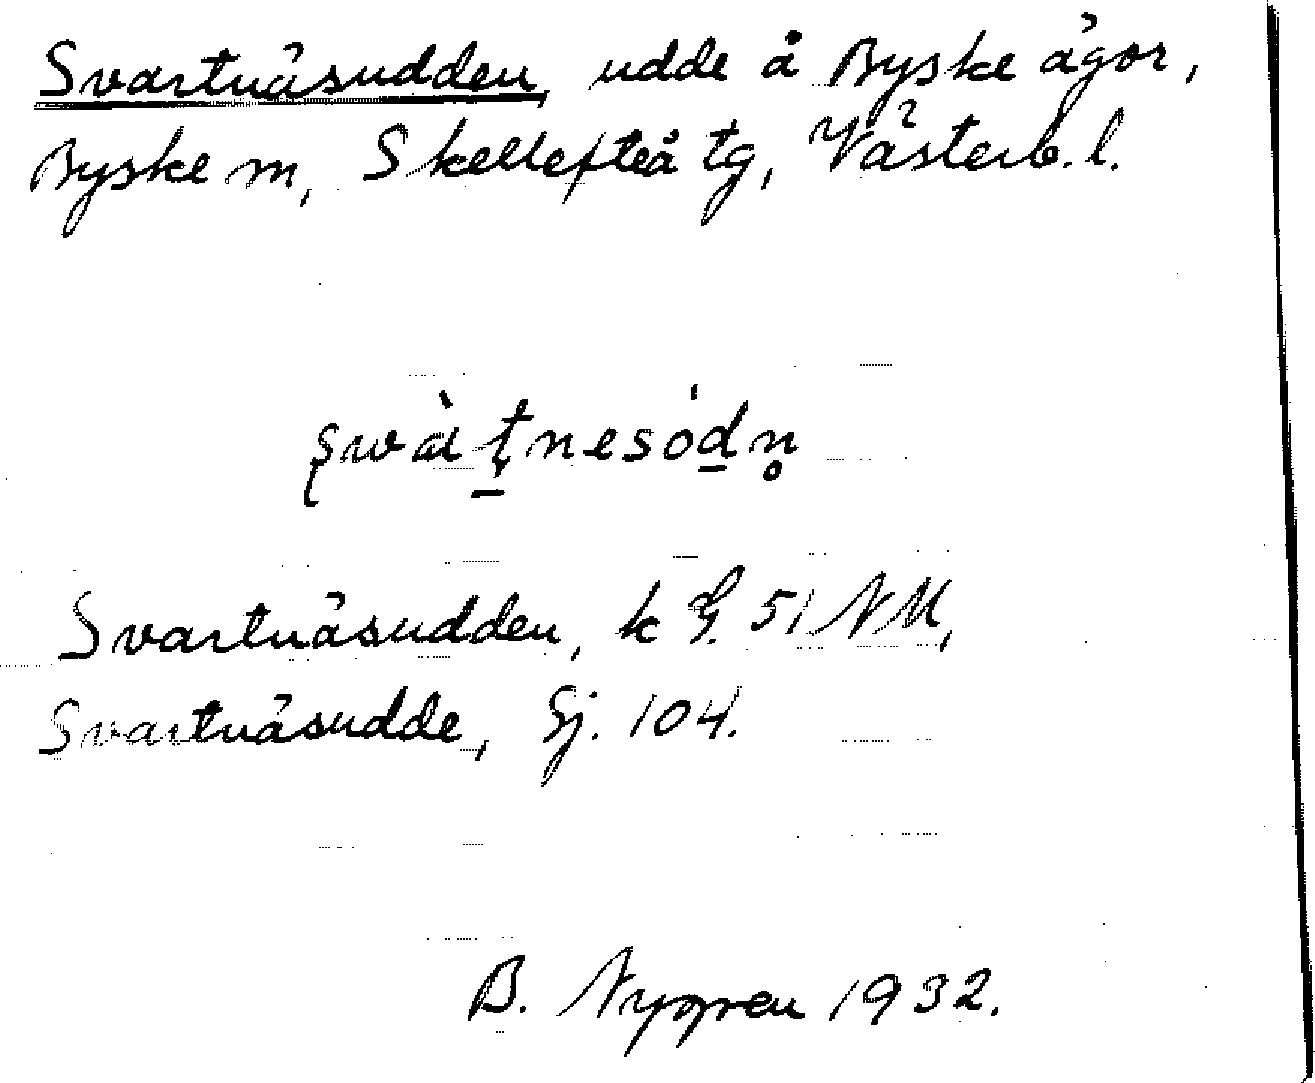 Svartnäsudden, udde å Byske ägor,
Byske sn, Skellefteå tg, Västerb. l.
swàtnesódn̥
Svartnäsudden, k G. 51 NM,
Svartnäsudde, Sj. 104.
B. Nygren 1932.